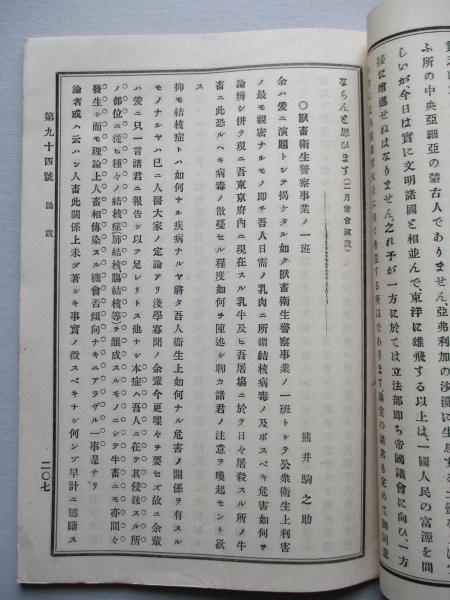 ふ所の中央亞細亞の蒙古人でありません、亞弗利加の沙漠に生息する
しいが今日は實に文明諸國と相並んで、東洋に雄飛する以上は、一國人民の富源を開
接に增進せねばなりません、之れ予が一方に於ては立法部即ち帝國議會に向ひ、一方
する所以であります、滿堂の諸君も定めて御同意
ならんと思ひます(二月常會演說)
〇獸畜衛生警察事業ノ一班
熊井駒之助
余ハ爰ニ演題トシテ揭ケタル如ク獸畜衛生警察事業ノ一班トシテ公衆衛生上利害
ノ最モ親密ナルモノ即チ吾人日需ノ乳肉ニ所謂結核病毒ノ及ボスベキ危害如何ヲ
論辨シ併テ現ニ吾東京府內ニ現在スル乳牛及ヒ吾屠場ニ於テ日々屠殺スル所ノ牛
畜ニ此恐ルヘキ病毒ノ散蔓セル程度如何ヲ陳述シ聊カ諸君ノ注意ヲ喚起セント欲
ス
抑モ結核症トハ如何ナル疾病ナルヤ將タ吾人衛生上如何ナル危害ノ關係ヲ有スル
モノナルヤハ已ニ人醫大家ノ定論アリ淺學寡聞ノ余輩今更喋々ヲ要セズ故ニ余輩
ハ爰ニ只一言諸君ニ報告シ以テ足レリトス他ナシ本症ハ吾人ニ在テ其侵蝕スル所
ノ部位ニ從ヒ種々ノ結核症(肺結核、腸結核等)ヲ釀成スルモノニシテ牛畜ニモ亦間々
發生シ而モ理論上人畜相傳染スル機會否傾向ナキニアラザル一事是ナリ
論者或ハ云ハン人畜此關係上未ダ著シキ事實ノ徵スベキナシ何ンゾ早計ニ臆斷ス
第九十四號　論說
二〇七